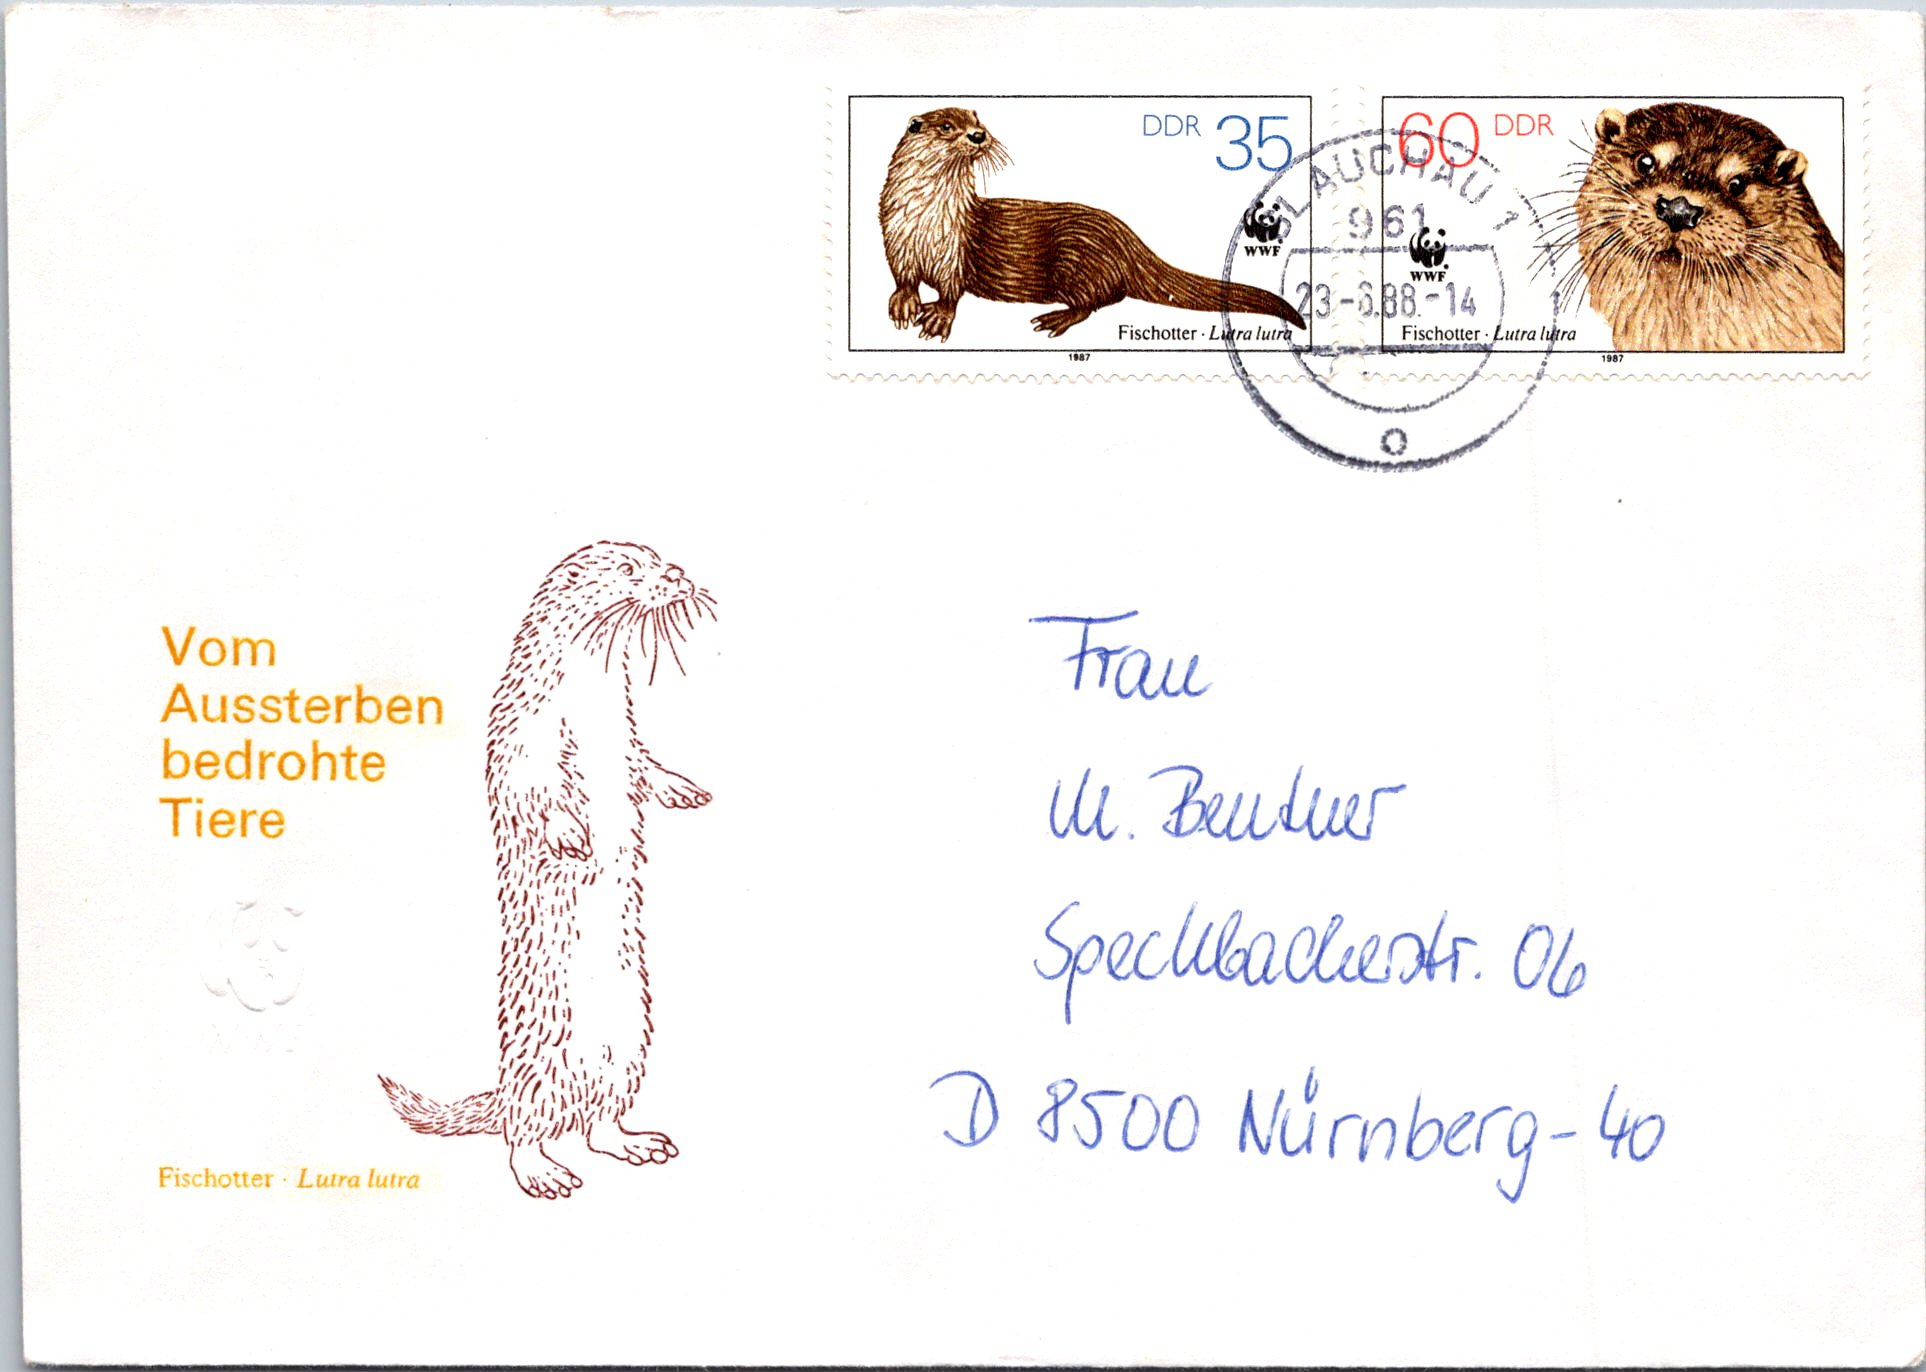 DDR 35
WWF
Fischotter · Lutra lutra
1987
60 DDR
WWF
Fischotter · Lutra lutra
1987
GLAUCHAU 1
961
23.-6.88.-14
o
Vom
Aussterben
bedrohte
Tiere
Fischotter · Lutra lutra
Frau
M. Bentner
Speckbacherstr. 06
D 8500 Nürnberg-40